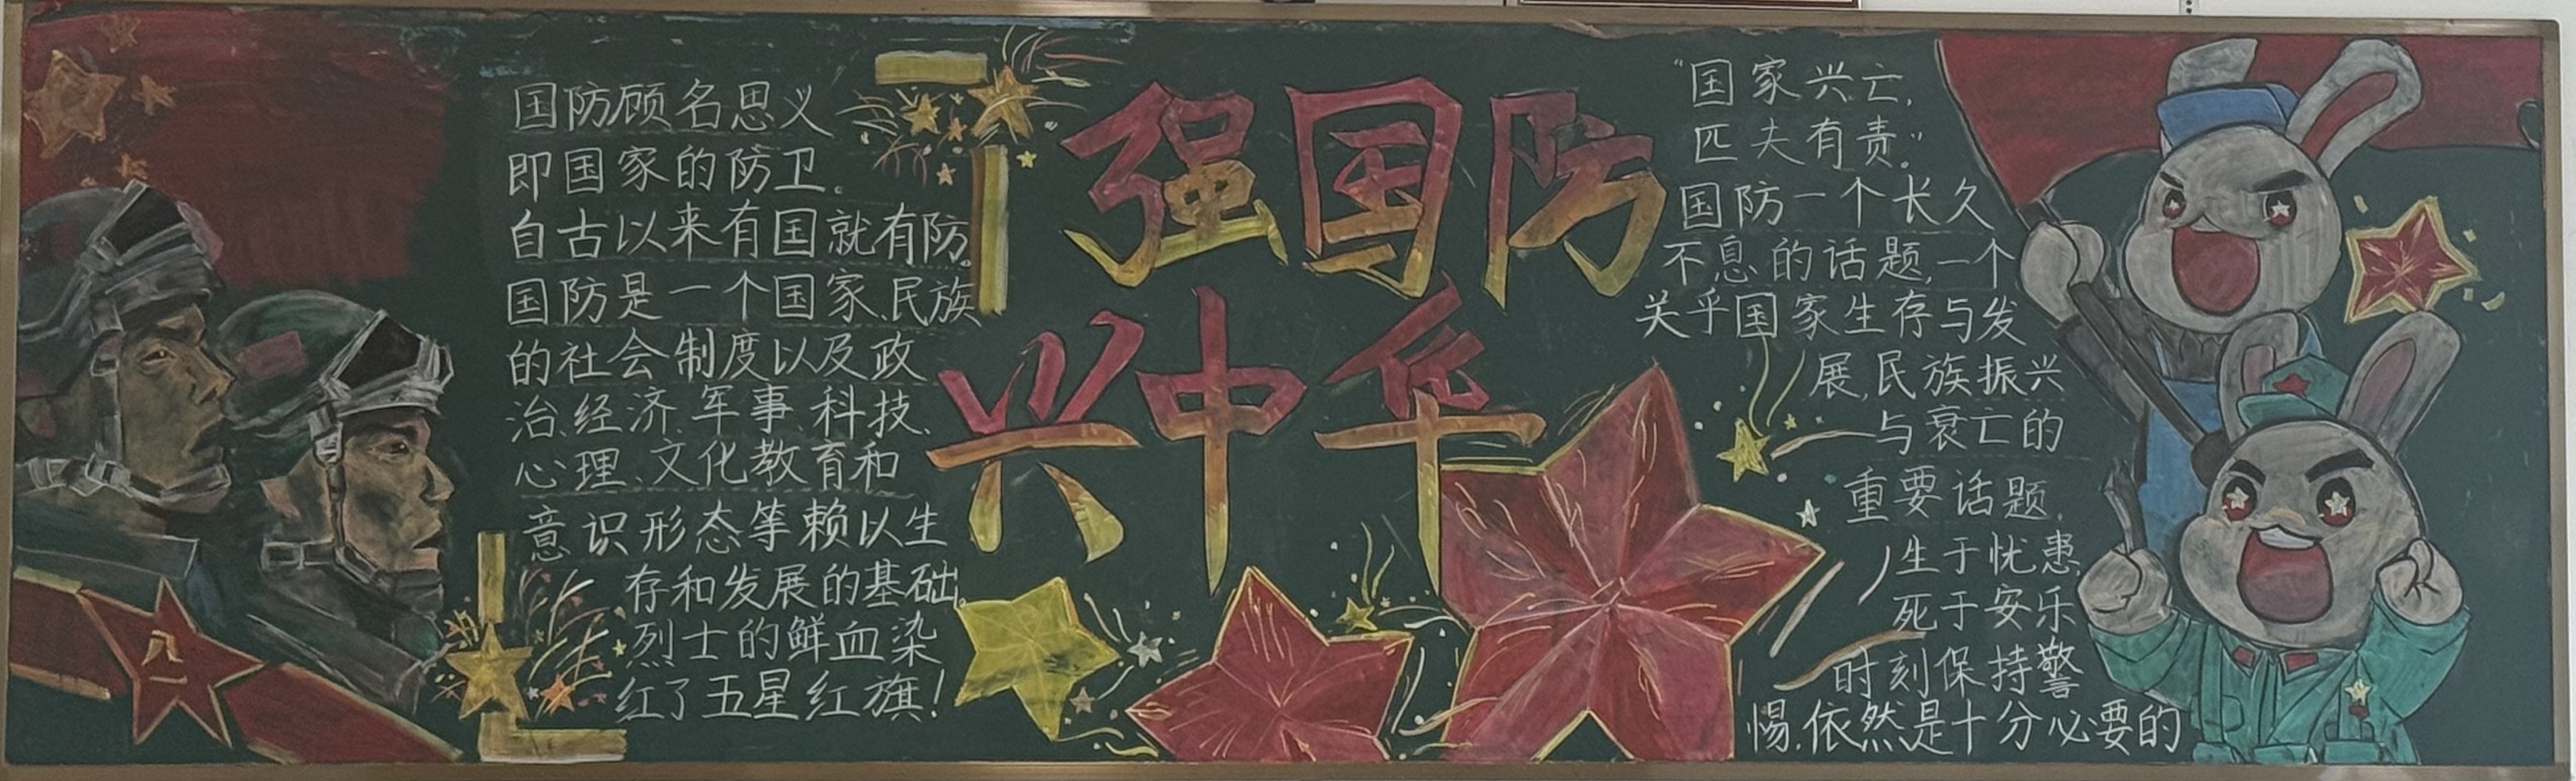 国防顾名思义
即国家的防卫。
自古以来有国就有防。
国防是一个国家、民族
的社会制度以及政
治、经济、军事、科技、
心理、文化教育和
意识形态等赖以生
存和发展的基础。
烈士的鲜血染
红了五星红旗!
强国防
兴中华
“国家兴亡,
匹夫有责”。
国防一个长久
不息的话题,一个
关乎国家生存与发
展,民族振兴
与衰亡的
重要话题.
生于忧患,
死于安乐
时刻保持警
惕,依然是十分必要的
八一